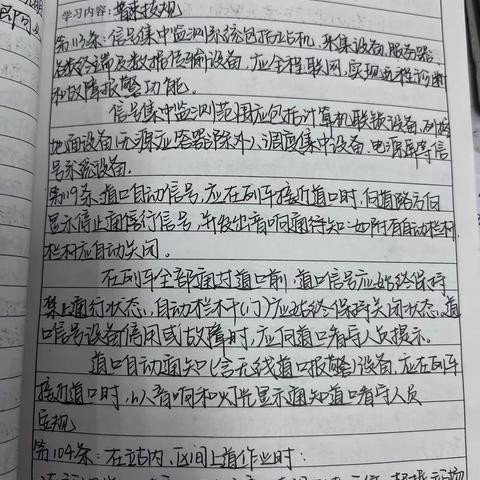 学习内容：普速技规
第113条：信号集中监测系统包括站机、采集设备、服务器、
各级终端及数据传输设备，应全程联网，实现远程诊断
和故障报警功能。
信号集中监测范围应包括计算机联锁设备、列控
地面设备（无源应答器除外）、调度集中设备、电源屏等信
号系统设备.
第119条 道口自动信号，应在列车接近道口时，向道路方向
显示停止通行信号，并发出音响通知：如附有自动栏杆，
栏杆应自动关闭。
在列车全部通过道口前，道口信号应始终保持
禁止通行状态，自动栏杆(门)应始终保持关闭状态，道
口信号设备停用或故障时，应向道口看守人员提示。
道口自动通知（含无线道口报警）设备，应在列车
接近道口时，以音响和灯光显示通知道口看守人员
安规
第104条：在站内、区间上道作业时：